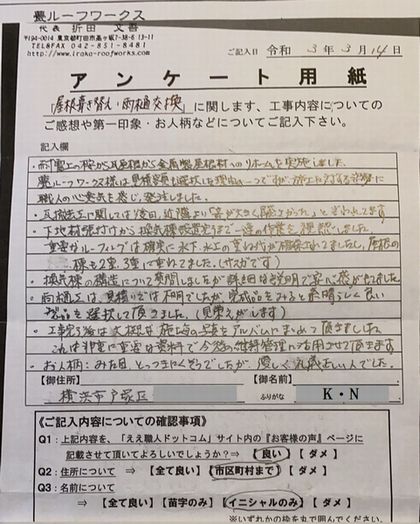 甍ルーフワークス
代表 折田 文善
〒194-0014 東京都町田市高ヶ坂7-38-6 13-11
TEL&FAX 042-851-8481
http://www.iraka-roofworks.com
ご記入日 令和 3年 3月 14日
アンケート用紙
「屋根葺き替え・雨樋交換」に関します、工事内容についての
ご感想や第一印象・お人柄などについてご記入下さい。
記入欄
・耐震上の桟から瓦屋根から金属製屋根材へのリホームを実施しました。
甍ルーフワークス様は見積容易も選択した理由の一つですが、施工に対する姿勢に
職人の心意気を感じ、発注しました。
・瓦撤去に関しては後日、近隣より「音が大きく騒さかった」と言われてます
・下地材張付けから換気棟設置まで一連の作業を視認しました。
重要なルーフィングは確実に水下、水上の重ね代が確保されてましたし、屋根の
棟も2重3重に重ねてました。(サスガです)
・換気棟の構造について質問しましたが詳細な説明で安心感がもてました
・雨樋工は、見積りでは不明でしたが完成品をみると素晴らしく良い
製品を選択して頂きました。(見栄えがします)
・工事完了後は文様と施工時の写真をアルバムにまとめて頂きました。
これは非常に重要な資料で今後の維持管理に活用させて頂きます。
・お人柄:みた目、とっつきにくそうでしたが 優しく礼義正しい人でした。
【御住所】 【御名前】
横浜市戸塚区 ふりがな K・N
《ご記入内容についての確認事項》
Q1:上記内容を、「ええ職人ドットコム」サイト内の『お客様の声』ページに
記載させて頂いてよろしいでしょうか?⇒【良い】【ダメ】
Q2:住所について ⇒【全て良い】【市区町村まで】【ダメ】
Q3:名前について
⇒【全て良い】【苗字のみ】【イニシャルのみ】【ダメ】
※いずれかの枠を丸で囲んでください。